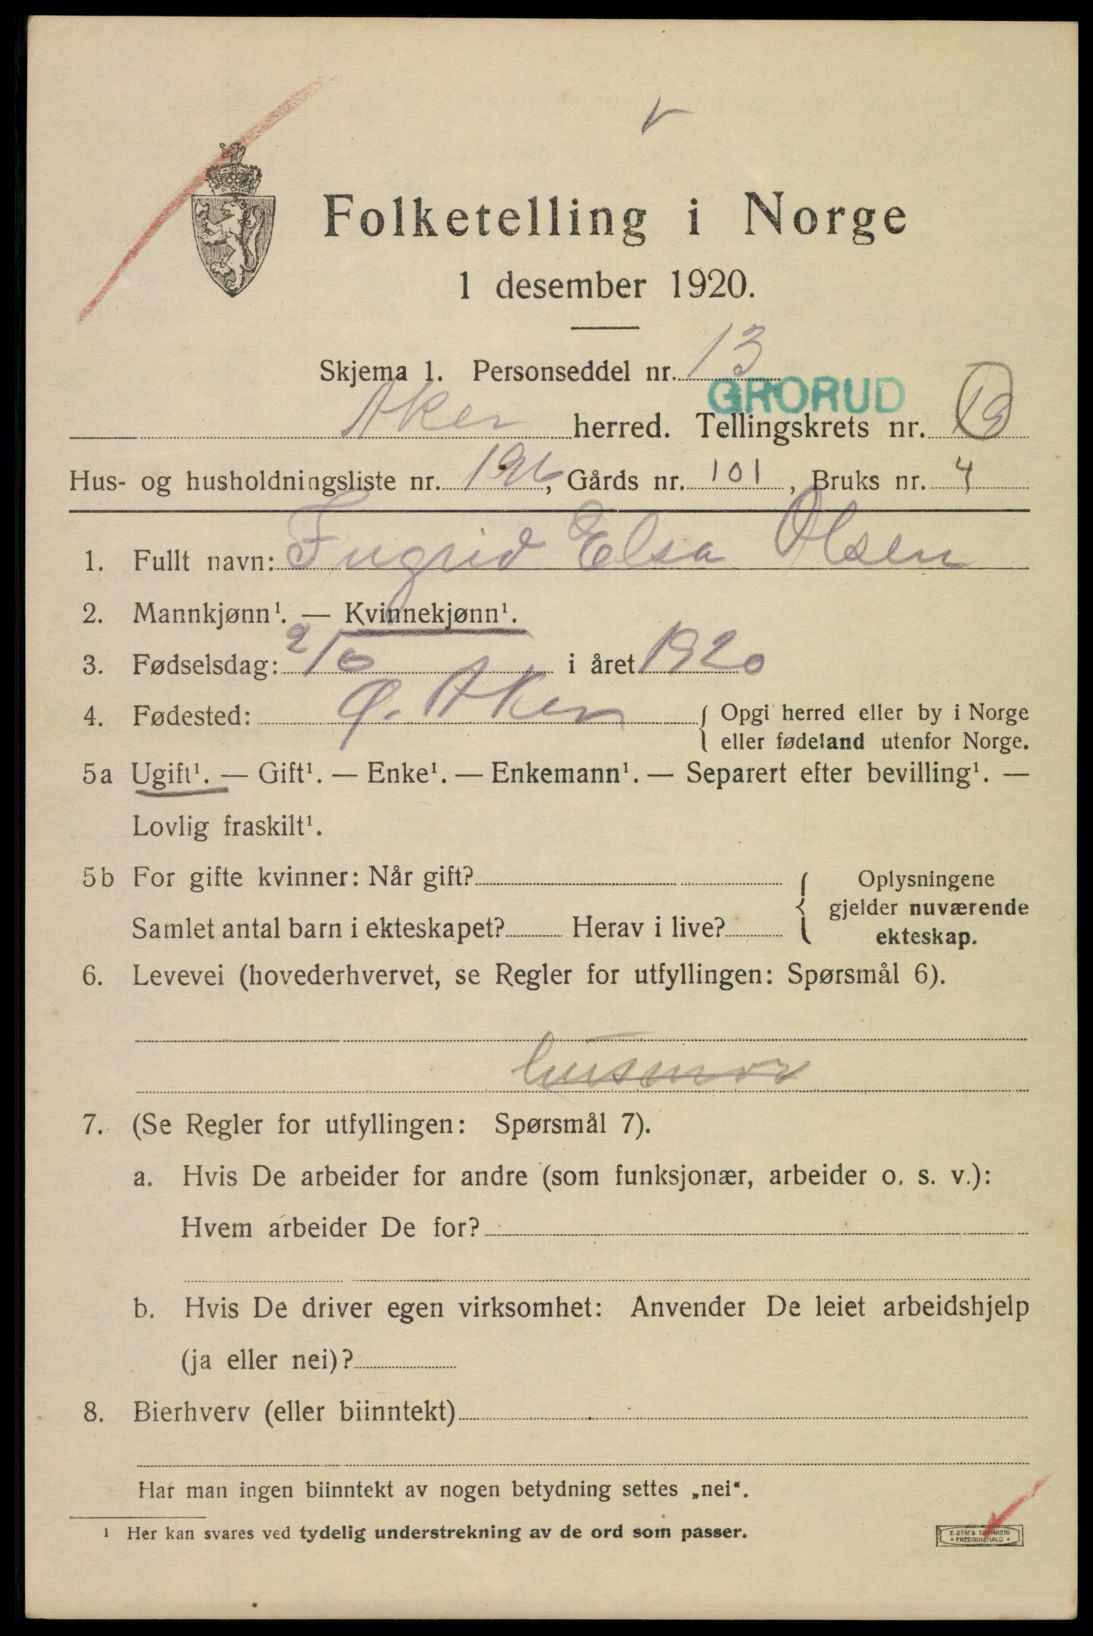 Folketelling i Norge
1 desember 1920.
Skjema 1. Personseddel nr. 13
GRORUD
Aker herred. Tellingskrets nr. 13
Hus- og husholdningsliste nr. 196, Gårds nr. 101, Bruks nr. 4
1. Fullt navn: Ingrid Elsa Olsen
2. Mannkjønn¹. — Kvinnekjønn¹.
3. Fødselsdag: 2/6 i året 1920
4. Fødested: Ø. Aker { Opgi herred eller by i Norge
eller fødeland utenfor Norge.
5a Ugift¹. — Gift¹. — Enke¹. — Enkemann¹. — Separert efter bevilling¹. —
Lovlig fraskilt¹.
5b For gifte kvinner: Når gift? { Oplysningene
gjelder nuværende
Samlet antal barn i ekteskapet? Herav i live? ekteskap.
6. Levevei (hovederhvervet, se Regler for utfyllingen: Spørsmål 6).
husmor
7. (Se Regler for utfyllingen: Spørsmål 7).
a. Hvis De arbeider for andre (som funksjonær, arbeider o. s. v.):
Hvem arbeider De for?
b. Hvis De driver egen virksomhet: Anvender De leiet arbeidshjelp
(ja eller nei)?
8. Bierhverv (eller biinntekt)
Har man ingen biinntekt av nogen betydning settes „nei“.
¹ Her kan svares ved tydelig understrekning av de ord som passer.
FREDRIKSHALD